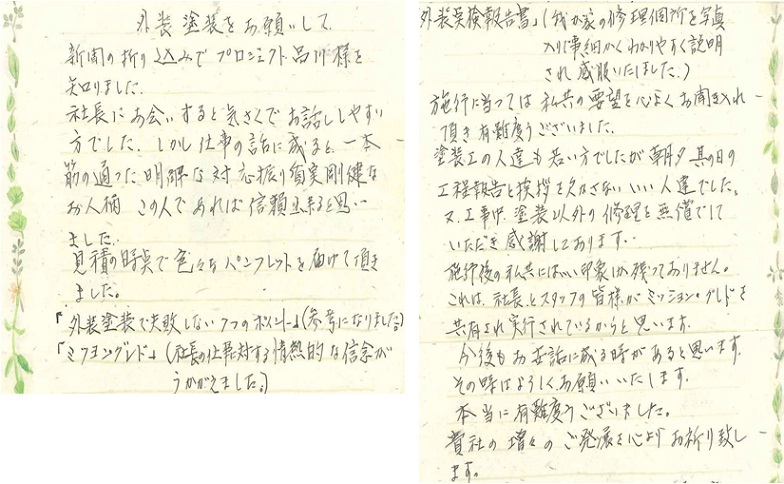 外装塗装をお願いして
新聞の折り込みでプロジェクト品川様を
知りました。
社長にお会いすると気さくでお話ししやすい
方でした。しかし仕事の話に成ると、一本
筋の通った明確な対応振り質実剛健な
お人柄 この人であれば信頼出来ると思い
ました。
見積の時点で色々なパンフレットを届けて頂き
ました。
『外装塗装で失敗しない7つのポイント』(参考になりました。)
「ミッヨングレド」(社長の仕事に対する情熱的な信念が
うかがえました。)
外装点検報告書」(我が家の修理個所を写真
入り事細かくわかりやすく説明
され感服いたしました。)
施行に当っては私共の要望を心よくお聞き入れ
頂き有難度うございました。
塗装工の人達も若い方でしたが朝夕其の日の
工程報告と挨拶を欠さないいい人達でした。
又、工事中、塗装以外の修理を無償でして
いただき感謝しております。
施行後の私共にはいい印象しか残っておりません。
これは、社長とスタッフの皆様がミッション・グレドを
共有され実行されているからと思います。
今後もお世話に成る時があると思います。
その時はよろしくお願いいたします。
本当に有難度うございました。
貴社の増々のご発展を心よりお祈り致し
ます。